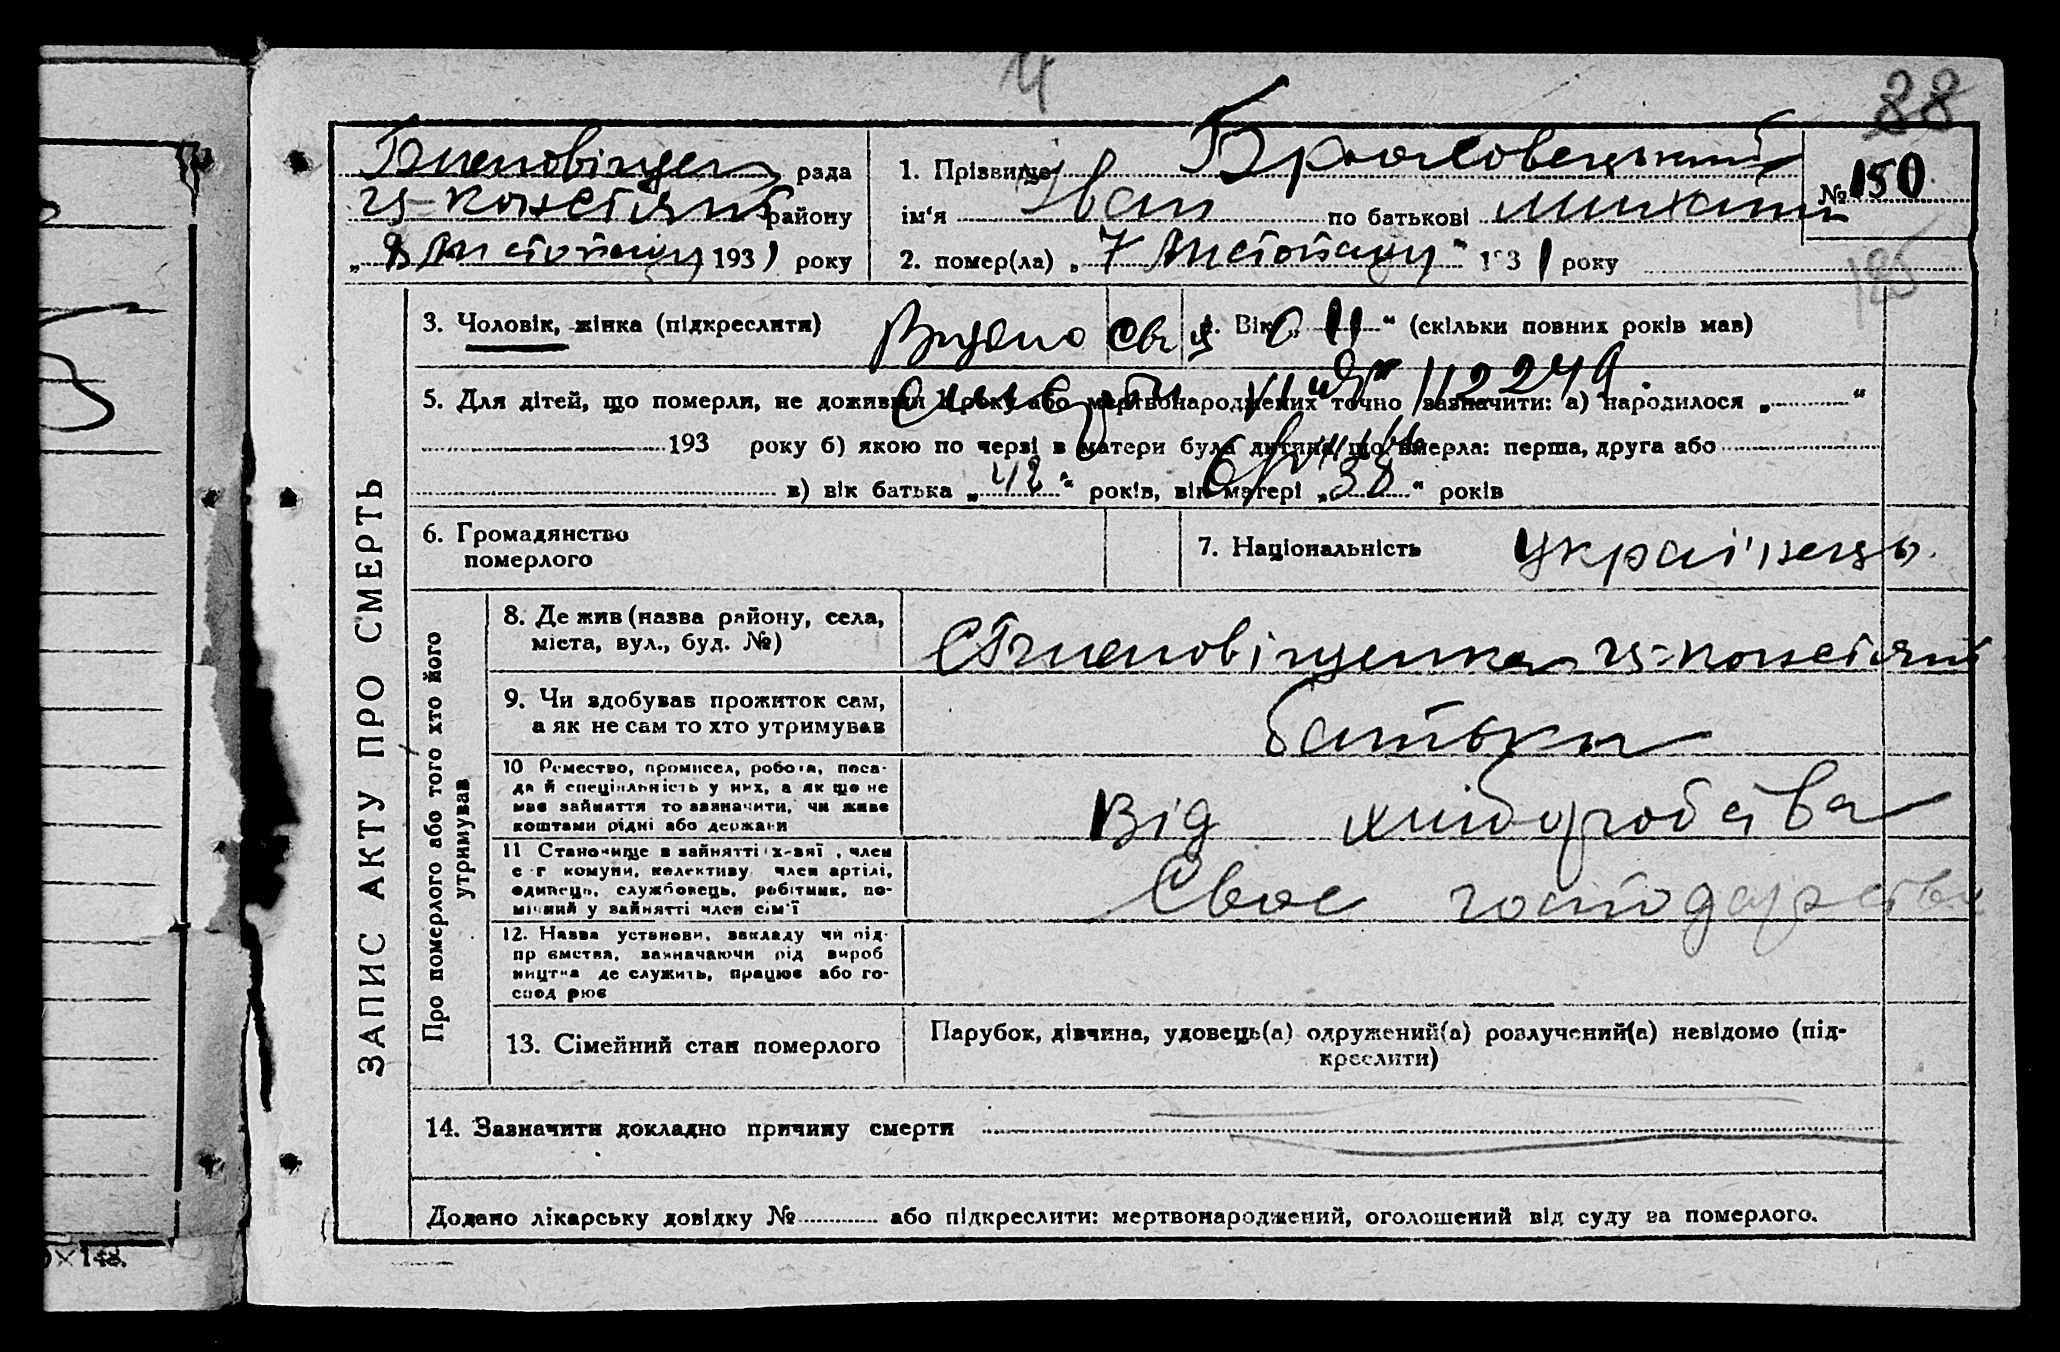 88
Билиловіцької рада
1. Прізвище Брюховецький
№ 150
района
ім'я Іван по батькові
185
„8 Листопаду 1931 року
2. помер(ла) „7 Листопаду“ 1931 року
ЗАПИС АКТУ ПРО СМЕРТЬ
3. Чоловік, жінка (підкреслити)
Вік „11“ (скільки повних років мав)
Видано
5. Для дітей, що померли, не доживши 1 року або мертвонароджених точно зазначити: а) народилося „ “
193 року б) якою по черзі в матери була дитина, що вмерла: перша, друга або
в) вік батька „42“ років, вік матері „38“ років
6. Громадянство
померлого
7. Національність Українець.
Про померлого або того хто його
утримував
8. Де жив (назва району, села,
міста, вул., буд. №)
9. Чи здобував прожиток сам,
а як не сам то хто утримував
батьки
10 Ремество, промисел, робота, поса-
да й спеціяльність у них, а як що не
має зайняття то зазначити, чи живе
коштами рідні або держави
Від хліборобства
11 Становище в зайнятті х-зяї, член
с-г комуни, колективу член артілі,
одинець, службовець, робітник, по-
мічний у зайнятті член сім'ї
Своє господарство
12. Назва установи, закладу чи під-
приємства, зазначаючи рід вироб
ництва де служить, працює або го-
сподарює
13. Сімейний стан померлого
Парубок, дівчина, удовець(а) одружений(а) розлучений(а) невідомо (під-
креслити)
14. Зазначити докладно причину смерти
Додано лікарську довідку № або підкреслити: мертвонароджений, оголошений від суду за померлого.